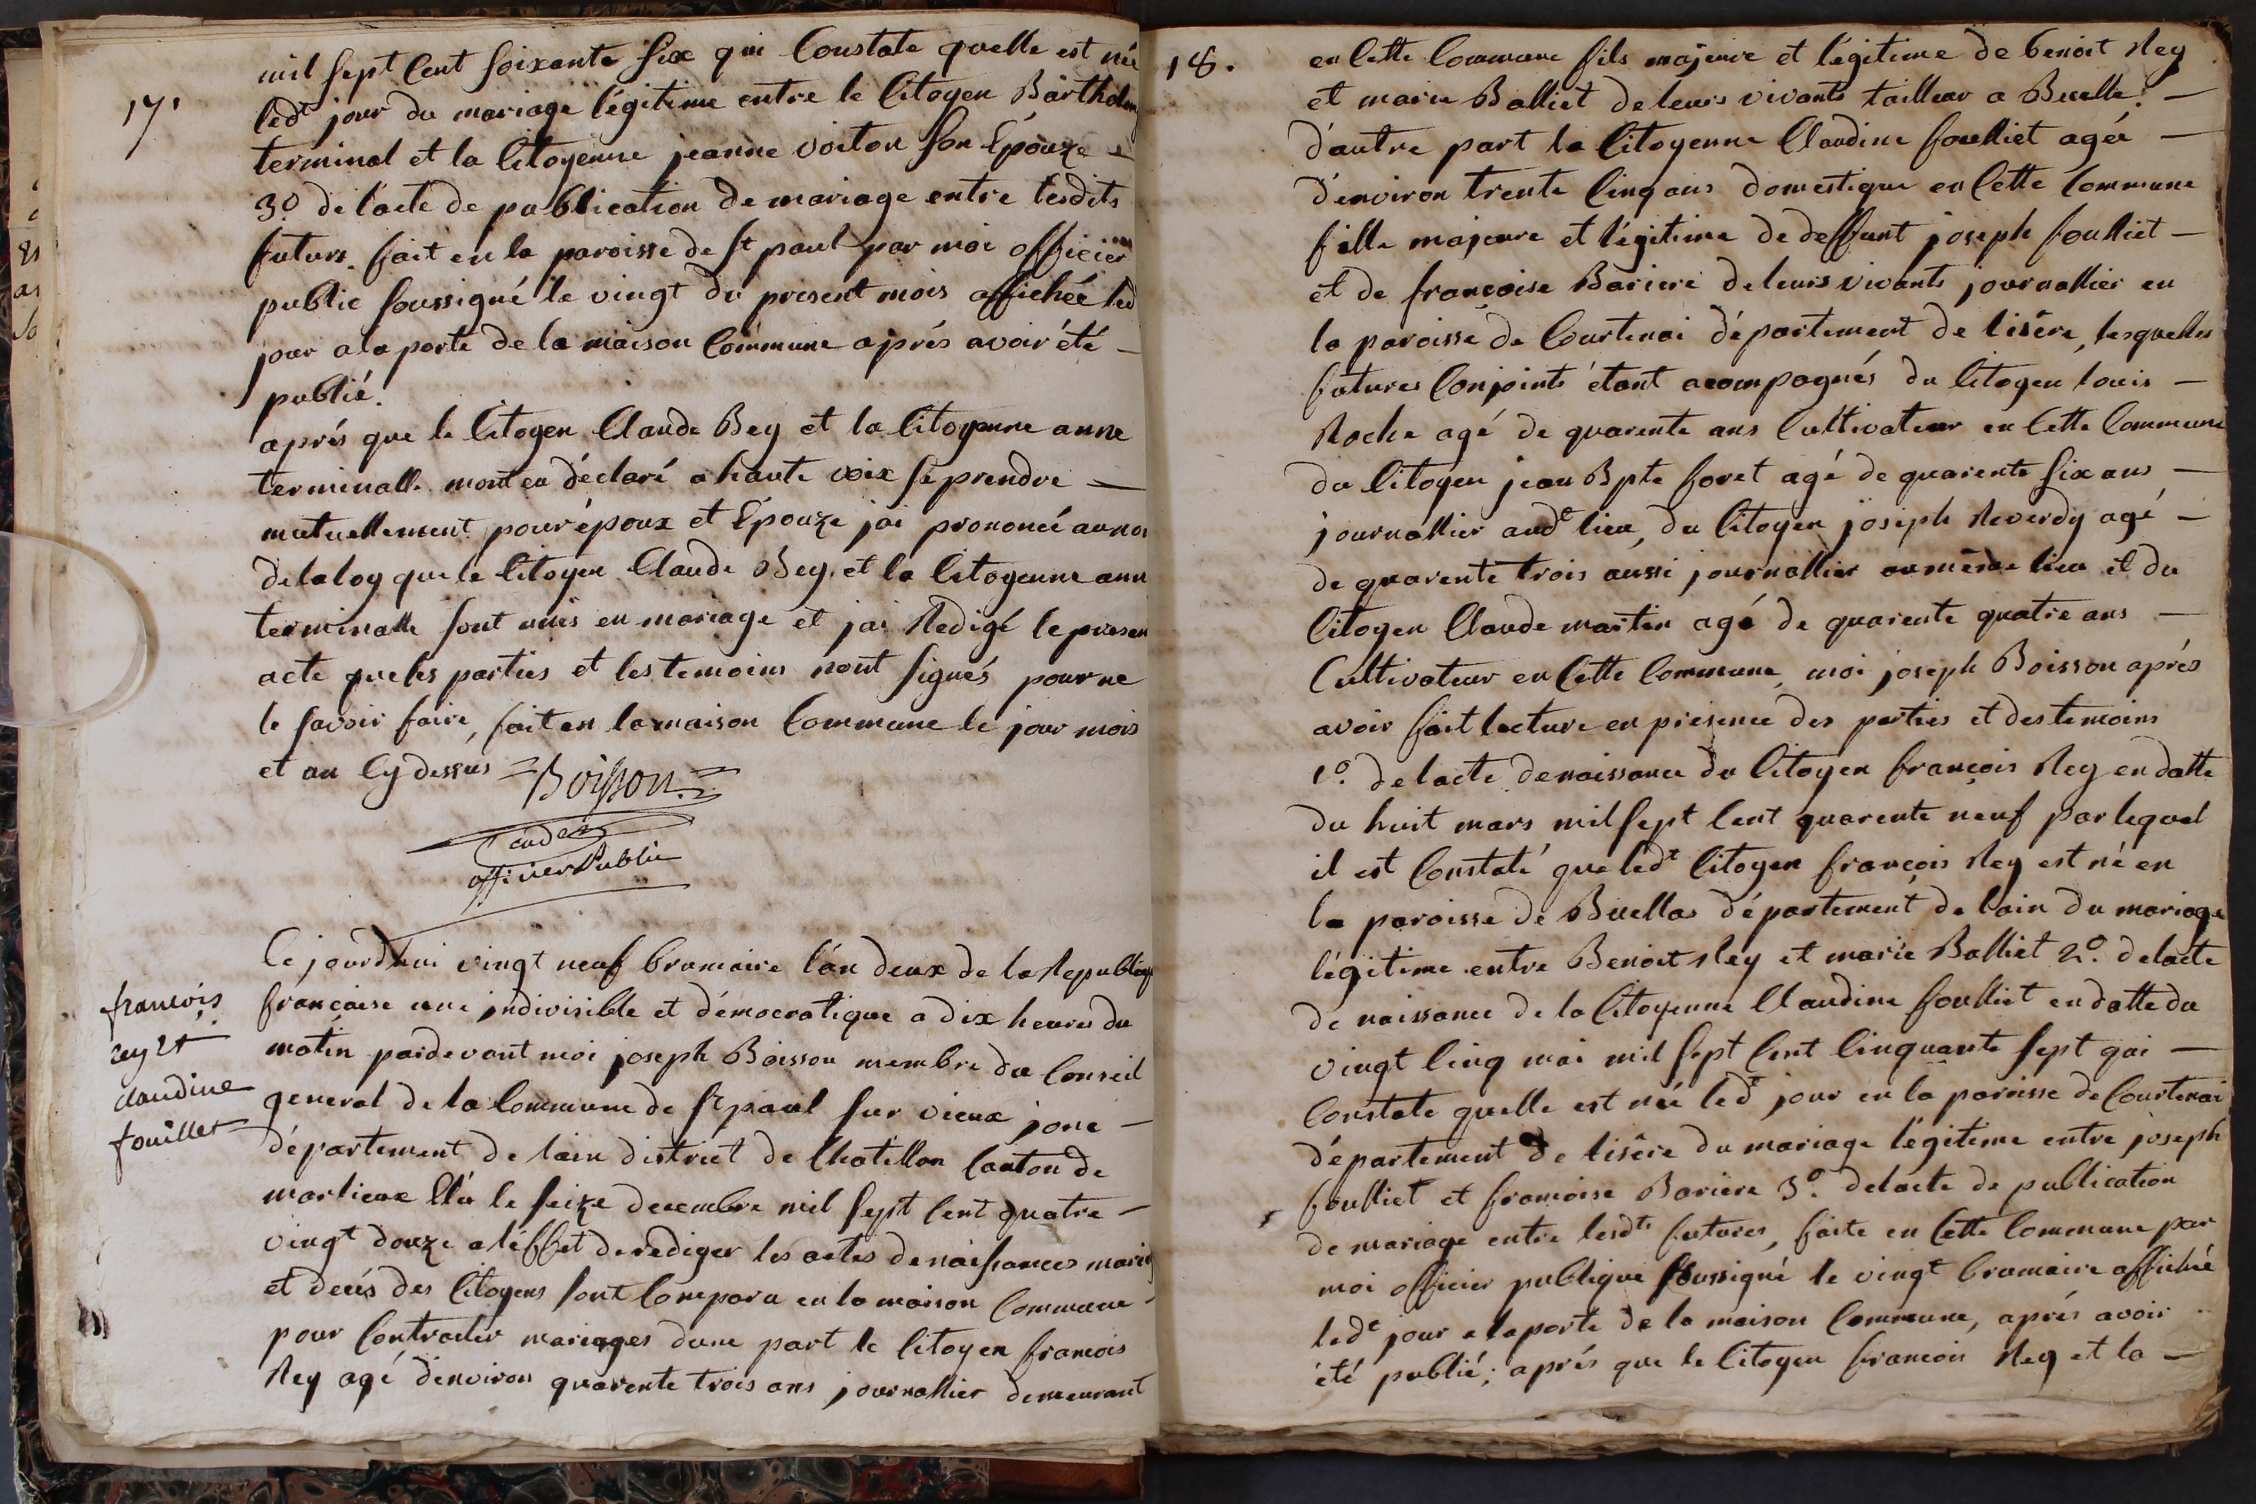 17.
mil sept Cent soixante six qui Constate quelle est née
ledt jour du mariage légitime entre le Citoyen Barthelemy
terminal et la Citoyenne jeanne voiton son Épouze
3º de lacte de publication de mariage entre lesdits
futurs fait en la paroisse de St paul par moi officier
public soussigné le vingt du present mois affichée led
jour a la porte de la maison Commune aprés avoir été
publié.
aprés que le Citoyen Claude Bey et la Citoyenne anne
terminalle mont eu déclaré a haute voix se prendre
mutuellement pour époux et Épouze jai prononcé au nom
de la loy que le Citoyen Claude Bey et la Citoyenne anne
terminalle sont unis en mariage et jai Redigé le present
acte que les parties et les temoins nont signés pour ne
le savoir faire, fait en la maison Commune le jour mois
et an Cy dessus = Boisson =
officier Public
francois
rey et
claudine
fouillet
Ce jourdhui vingt neuf brumaire l'an deux de la Republique
françaisse une indivisible et démocratique a dix heures du
matin pardevant moi joseph Boisson membre du Conseil
general de la Commune de St paul sur vieux jonc
département de lain district de Chatillon Canton de
marlieux Élu le seize decembre mil sept Cent quatre
vingt douze a léffet de rediger les actes de naissances mariag
et decés des Citoyens sont Comparu en la maison Commune
pour Contracter mariages dune part le Citoyen francois
Rey agé d'environ quarente trois ans journallier demeurant
18.
en Cette Commune fils majeure et légitime de benoit Rey
et marie Balliet de leurs vivants tailleur a Buelle.
d'autre part la Citoyenne Claudine foulliet agée
d'environ trente Cinq ans domestique en Cette Commune
fille majeure et légitime de deffunt joseph foulliet
et de françoise Bariere de leurs vivants journallier en
la paroisse de Courtenai département de lisére, lesquelles
futures Conjoints étant acompagnés du Citoyen louis
Roche agé de quarente ans Cultivateur en Cette Commune
du Citoyen jean Bpte foret agé de quarente six ans
journallier audt lieu, du Citoyen joseph Reverdy agé
de quarente trois aussi journallier au même lieu et du
Citoyen Claude martin agé de quarente quatre ans
Cultivateur en Cette Commune, moi joseph Boisson aprés
avoir fait lecture en presence des parties et des temoins
1º. de lacte de naissance du Citoyen françois Rey en datte
du huit mars mil sept Cent quarente neuf par lequel
il est Constaté que ledt Citoyen françois Rey est né en
la paroisse de Buellas département de lain du mariage
légitime entre Benoit Rey et marie Balliet 2º. de lacte
de naissance de la Citoyenne Claudine foulliet en datte du
vingt Cinq mai mil sept Cent Cinquante sept qui
Constate quelle est née ledt jour en la paroisse de Courtenai
département de lisêre du mariage légitime entre joseph
foulliet et francoise Bariere 3º. de lacte de publication
de mariage entre lesdts futures, faite en Cette Commune par
moi officier publique soussigné le vingt brumaire affichée
ledt jour a la porte de la maison Commune, aprés avoir
été publié; aprés que le Citoyen francois Rey et la